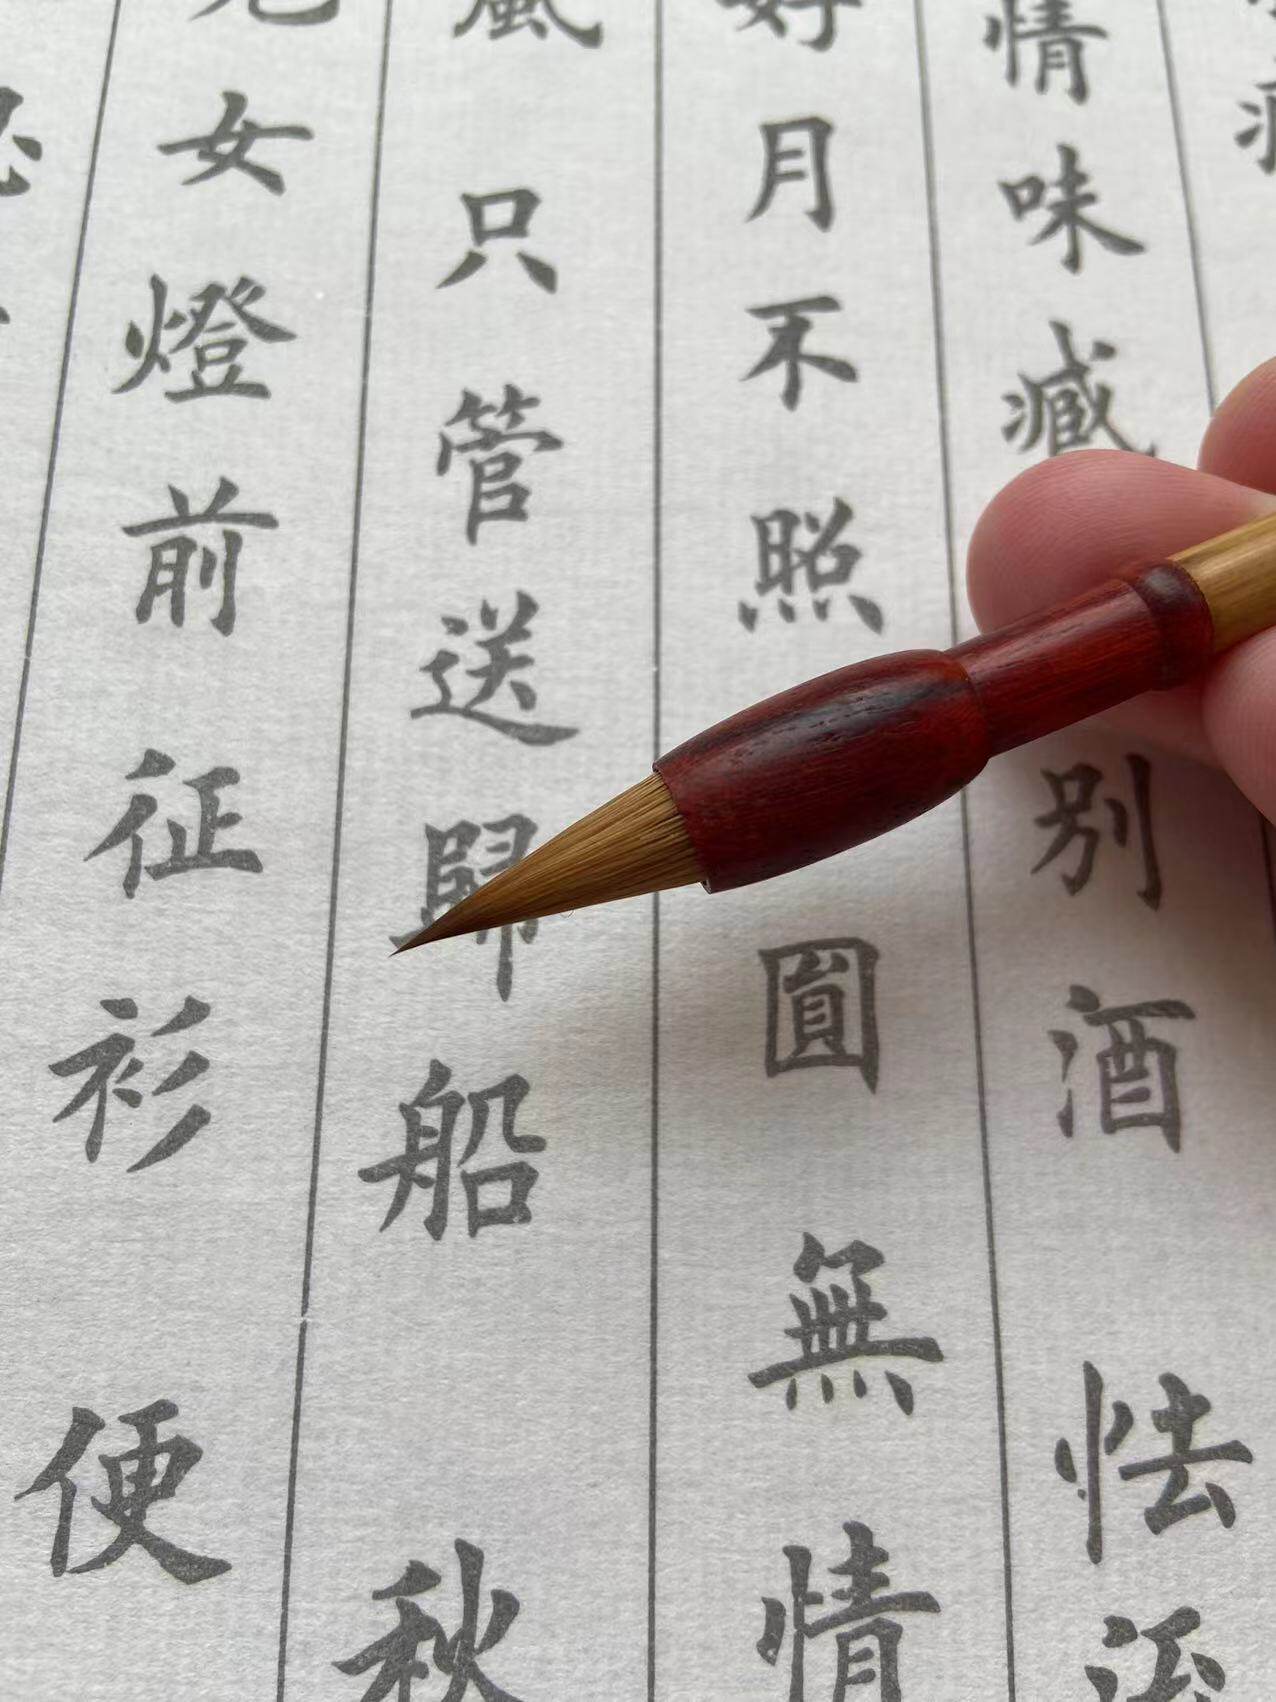 情味減別酒怯流
好月不照圓無情
風只管送歸船秋
女燈前征衫便